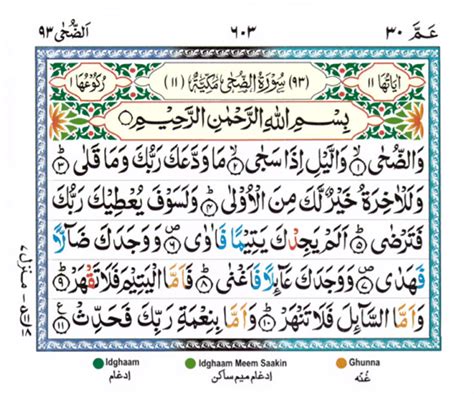 الضّحٰى ٩٣ ٦٠٣ عمّ ٣٠
اٰيَاتُهَا ١١ (٩٣) سُوْرَةُ الضُّحٰى مَكِّيَّةٌ (١١) رُكُوْعُهَا ١
بِسْمِ اللّٰهِ الرَّحْمٰنِ الرَّحِيْمِ
وَالضُّحٰى ۙ﴿١﴾ وَالَّيْلِ اِذَا سَجٰى ۙ﴿٢﴾ مَا وَدَّعَكَ رَبُّكَ وَمَا قَلٰى ؕ﴿٣﴾
وَلَلْاٰخِرَةُ خَيْرٌ لَّكَ مِنَ الْاُوْلٰى ؕ﴿٤﴾ وَلَسَوْفَ يُعْطِيْكَ رَبُّكَ
فَتَرْضٰى ؕ﴿٥﴾ اَلَمْ يَجِدْكَ يَتِيْمًا فَاٰوٰى ۪﴿٦﴾ وَوَجَدَكَ ضَآلًّا
فَهَدٰى ۪﴿٧﴾ وَوَجَدَكَ عَآئِلًا فَاَغْنٰى ؕ﴿٨﴾ فَاَمَّا الْيَتِيْمَ فَلَا تَقْهَرْ ؕ﴿٩﴾
وَاَمَّا السَّآئِلَ فَلَا تَنْهَرْ ؕ﴿١٠﴾ وَاَمَّا بِنِعْمَةِ رَبِّكَ فَحَدِّثْ ﴿١١﴾ ع
منزل ٧
Idghaam Idghaam Meem Saakin Ghunna
إدغام إدغام ميم ساكن غُنّه